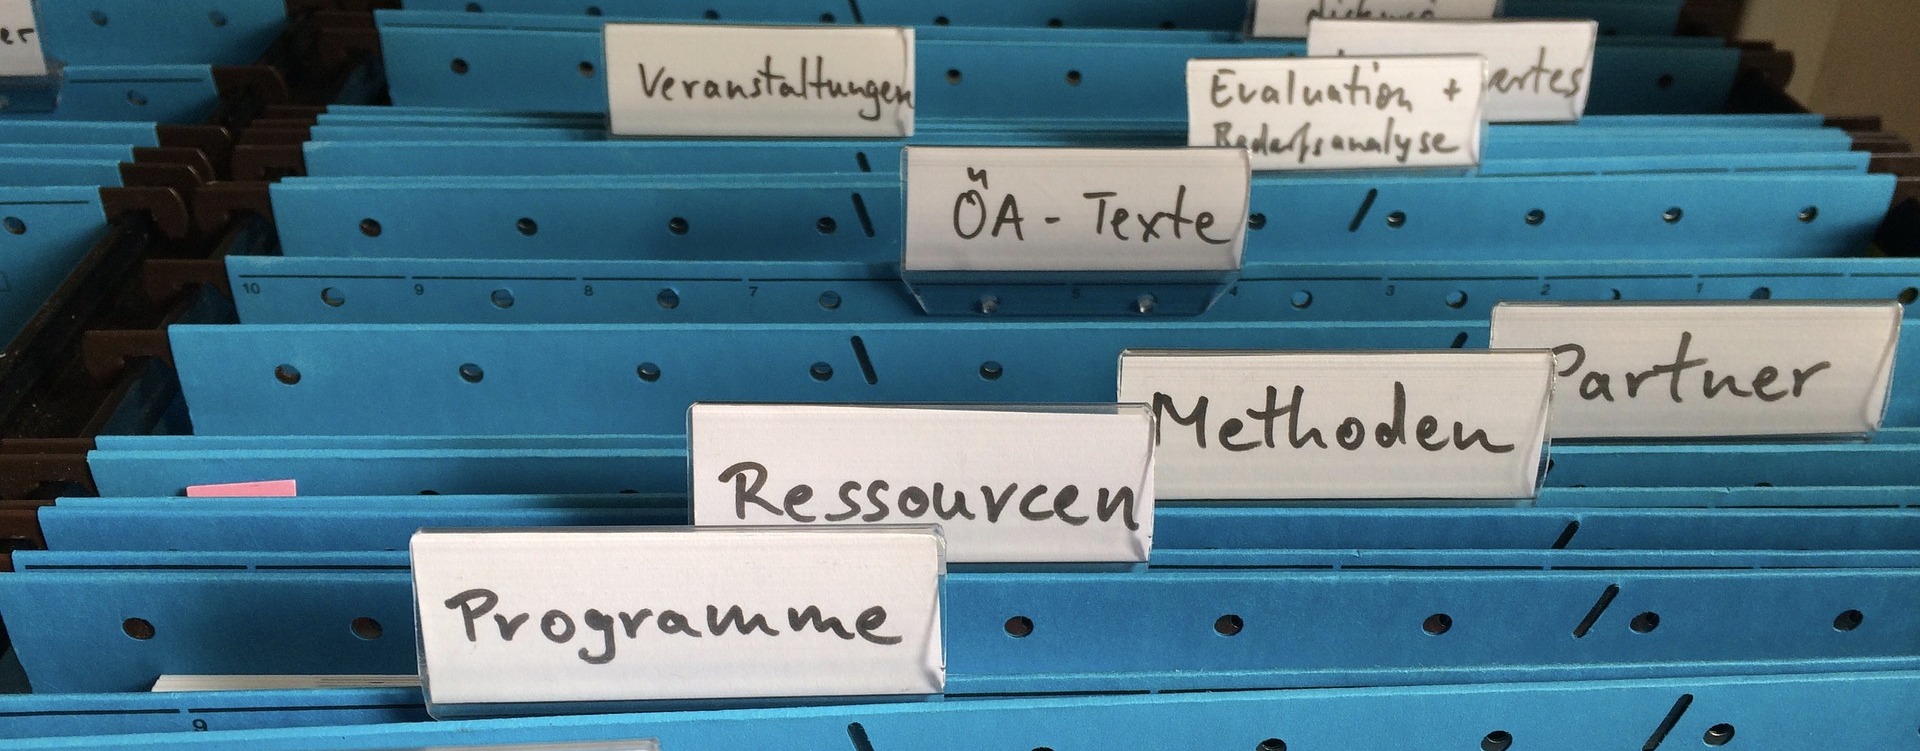 er
Veranstaltungen
Evaluation +
Bedarfsanalyse
ÖA - Texte
10 9 8 7 5 4 3 2 1
Partner
Methoden
Ressourcen
Programme
9